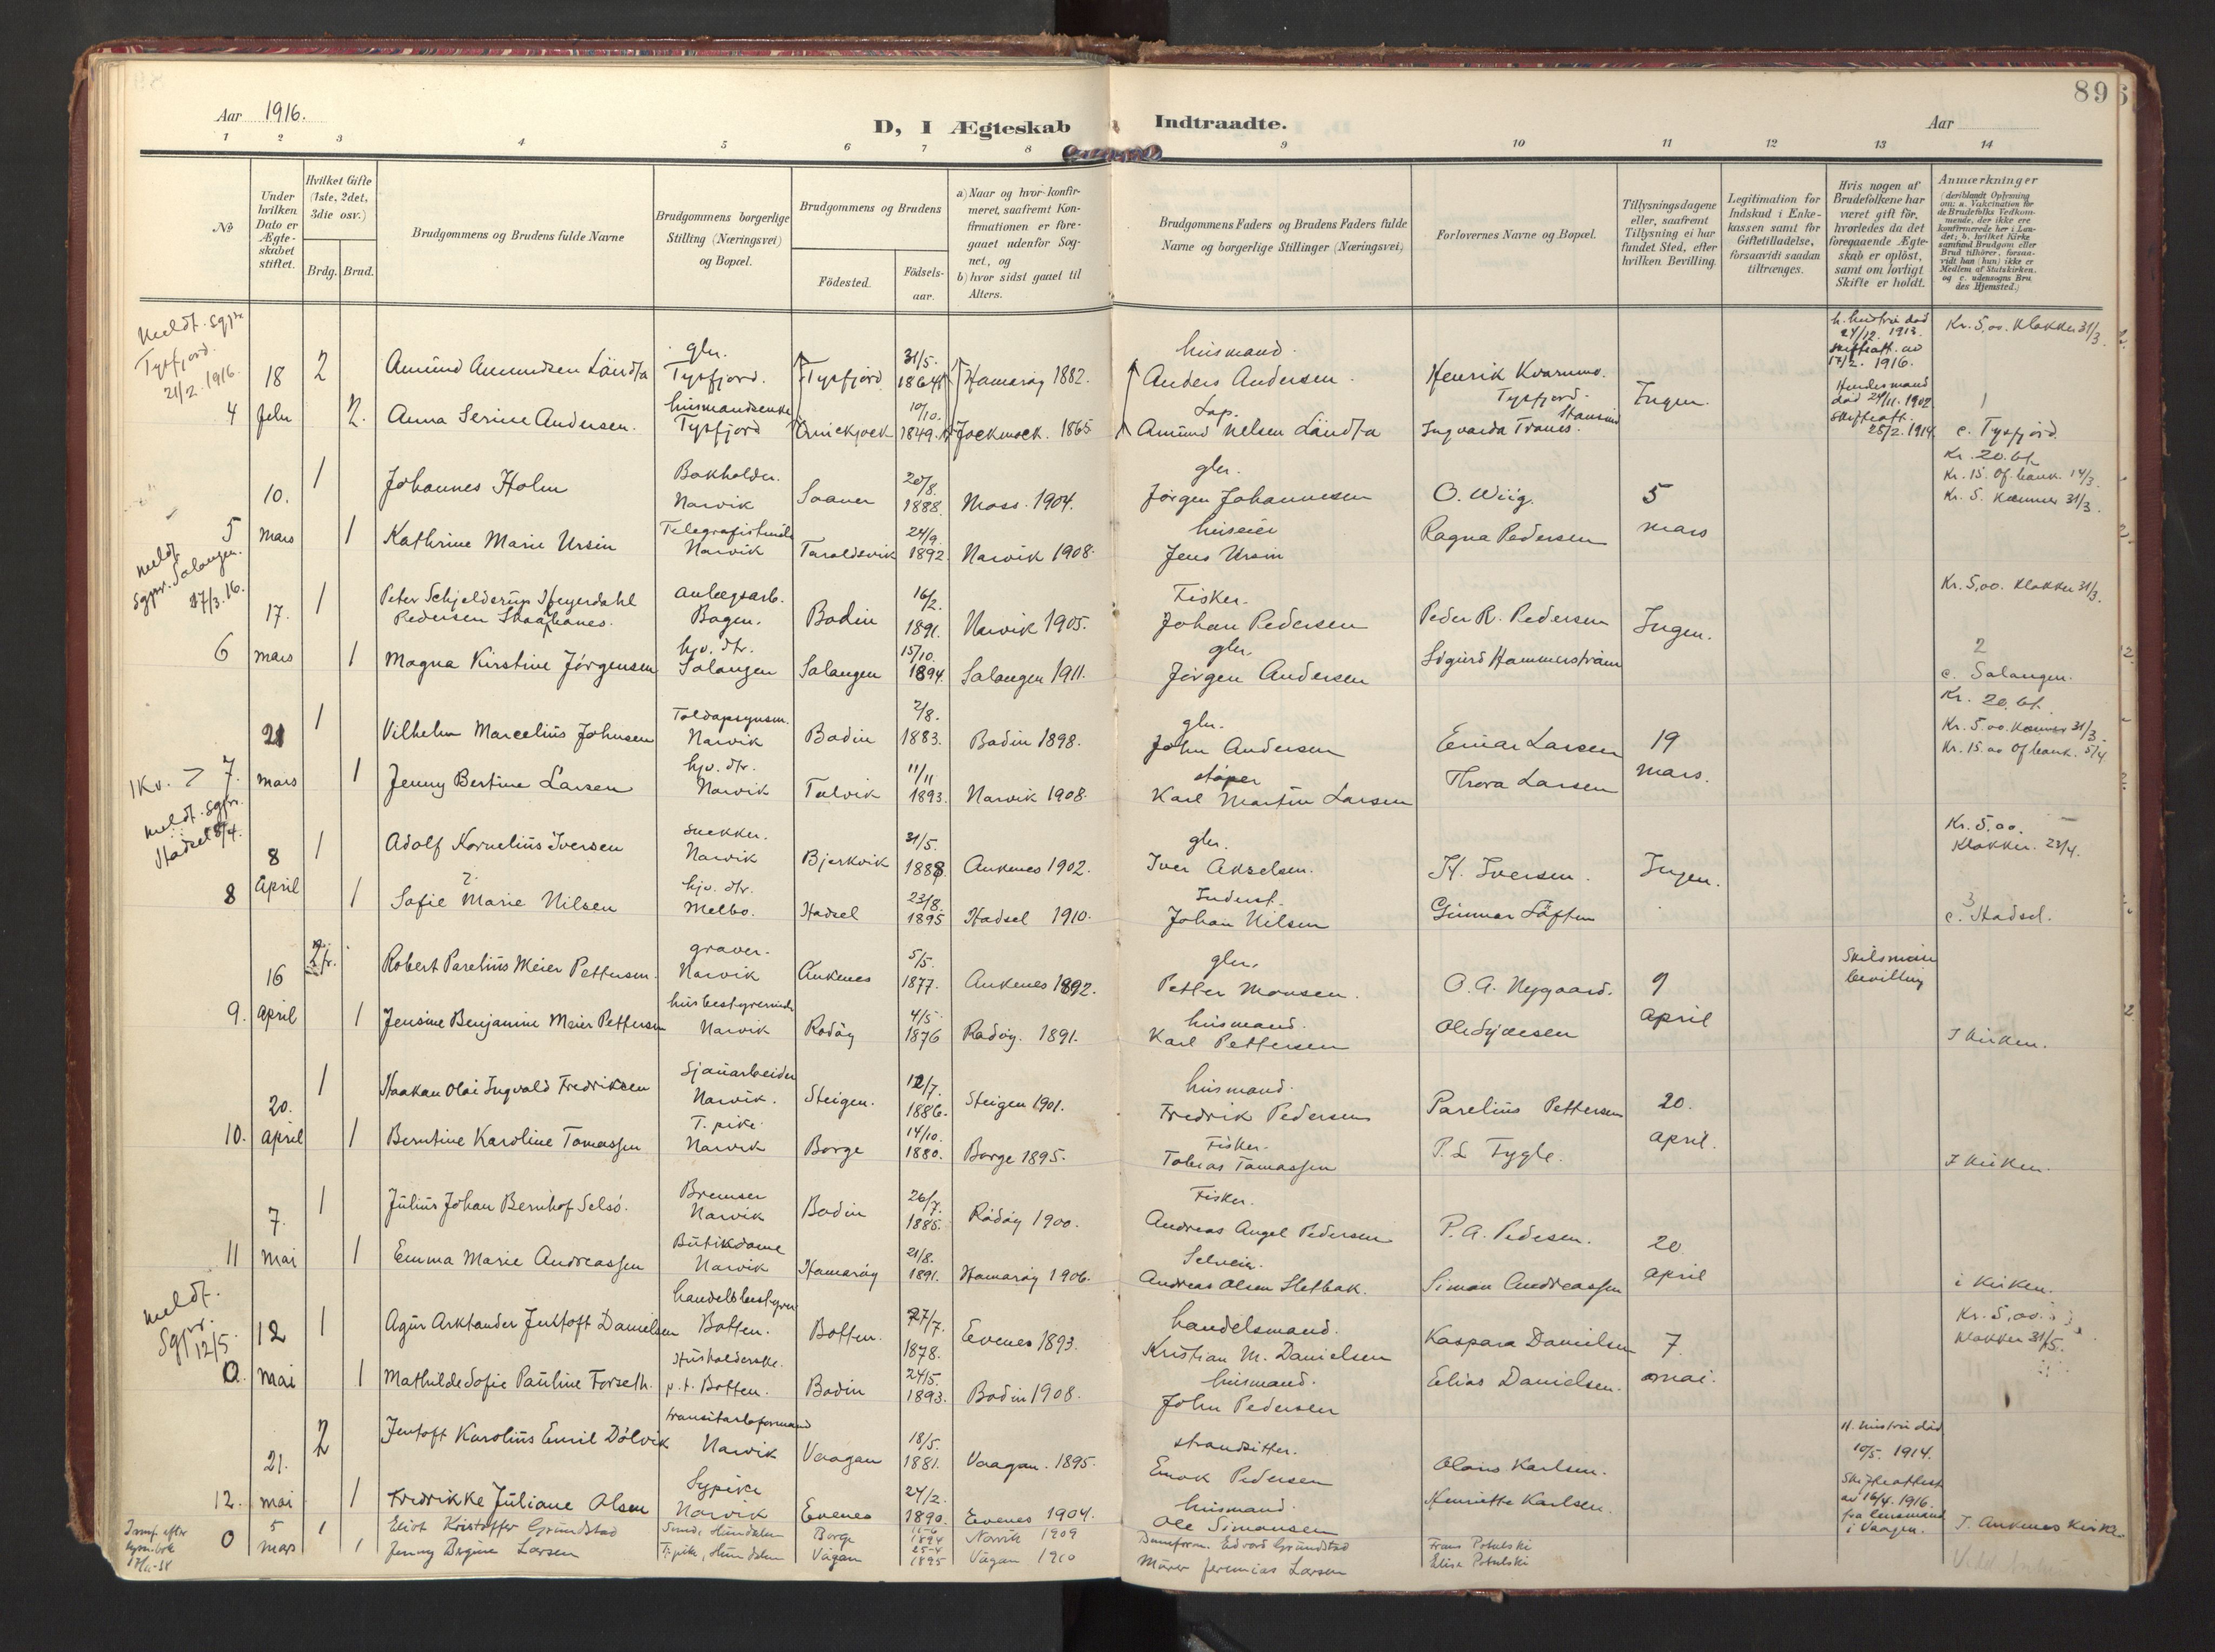 89
Aar 1916.
D, I Ægteskab Indtraadte.
Aar
1 2 3 4 5 6 7 8 9 10 11 12 13 14
No
Under hvilken Dato er Ægteskabet stiftet.
Hvilket Gifte (1ste, 2det, 3die osv.)
Brdg. Brud.
Brudgommens og Brudens fulde Navne
Brudgommens borgerlige Stilling (Næringsvei) og Bopæl.
Brudgommens og Brudens
Födested.
Födselsaar.
a) Naar og hvor konfirmeret, saafremt Konfirmationen er foregaaet udenfor Sognet, og
b) hvor sidst gaaet til Alters.
Brudgommens Faders og Brudens Faders fulde Navne og borgerlige Stillinger (Næringsvei)
Forlovernes Navne og Bopæl.
Tillysningsdagene eller, saafremt Tillysning ei har fundet Sted, efter hvilken Bevilling.
Legitimation for Indskud i Enkekassen samt for Giftetilladelse, forsaavidt saadan tiltrænges.
Hvis nogen af Brudefolkene har været gift för, hvorledes da det foregaaende Ægteskab er oplöst, samt om lovligt Skifte er holdt.
Anmærkninger
(deriblandt Oplysning om: a. Vakcination for de Brudefolks Vedkommende, der ikke ere konfirmerede her i Landet; b. hvilket Kirkesamfund Brudgom eller Brud tilhörer, forsaavidt han (hun) ikke er Medlem af Statskirken, og c. udensogns Brudes Hjemsted.)
Meldt. Sgpr. Tysfjord. 21/2. 1916.
18 2 Amund Amundsen Ländta gbr. Tysfjord. Tysfjord 31/5. 1864 Hamarøy 1882. husmand. Anders Andersen. Henrik Kvarumo. Tysfjord. Ingen. h. hustru død 24/12. 1913. skifteatt. av 17/2. 1916. Kr. 5,00. Klokker 31/3.
4 febr 2. Anna Serine Andersen. husmandsenke Tysfjord Qvickjock 10/10. 1849. Jockmock. 1865 Lap. Amund Nelsen Ländta Ingvarda Tranes. Hendes mand død 24/11. 1902. skifteatt. 28/2. 1914 1 c. Tysfjord.
10. 1 Johannes Holm Bokholder. Narvik Saaner 20/8. 1888. Moss. 1904. gbr. Jörgen Johannesen O. Wiig. 5 Kr. 20. bl. Kr. 15. Of. bank. 14/3. Kr. 5. Kæmner 31/3.
5 mars 1 Kathrine Marie Ursin Telegrafistinde Narvik Taraldsvik 24/9. 1892. Narvik 1908. huseier Jens Ursin Ragna Pedersen mars
meldt. Sgpr. Salangen. 27/3. 16.
17. 1 Peter Schjelderup Heyerdahl Pedersen Skaa anlægsarb. Bogen. Bodin 16/2. 1891. Narvik 1905. Fisker. Johan Pedersen Peder R. Pedersen Ingen. Kr. 5,00. Klokker 31/3.
6 mars 1 Magna Kirstine Jörgensen hjv. dtr. Salangen Salangen 15/10. 1894. Salangen 1911. gbr. Jörgen Andersen Sigurd Hammerström 2 c. Salangen.
21 1 Vilhelm Marcelius Johnsen Toldopsynsm. Narvik Bodin 2/8. 1883. Bodin 1898. gbr. John Andersen Einar Larsen 19 Kr. 20. bl. Kr. 5.00. Kæmner 31/3. Kr. 15.00 Of bank. 5/4
1 Kv. 7. mars 1 Jenny Bertine Larsen hjv. dtr. Narvik Talvik 11/11 1893. Narvik 1908. støper Karl Martin Larsen Thora Larsen mars.
meldt. Sgpr. Hadsel 8/4.
8 1 Adolf Kornelius Iversen snekker. Narvik Bjerkvik 31/5. 1888. Ankenes 1902. gbr. Iver Akselsen. H. Iversen. Ingen. Kr. 5,00. Klokker. 23/4.
8 April 1 Sofie Marie Nilsen hjv. dtr. Melbo. Hadsel 23/8. 1895 Hadsel 1910. Inderst. Johan Nilsen Gunnar Löften 3 c. Hadsel.
16 2 fr. Robert Parelius Meier Pettersen. graver. Narvik Ankenes 5/5. 1877. Ankenes 1892. gbr. Petter Monsen. O. A. Nygaard. 9 Skilsmissebevilling
9. April 1 Jensine Benjamine Meier Pettersen husbestyrerinde Narvik Rødøy 4/5. 1876 Rødøy. 1891. husmand. Karl Pettersen Ole April I kirken.
20. 1 Haakan Olai Ingvald Fredriksen Sjauarbeider Narvik. Steigen. 12/7. 1886. Steigen 1901. husmand. Fredrik Pedersen Parelius Pettersen 20.
10. April 1 Berntine Karoline Tomassen T. pike. Narvik Borge 14/10. 1880. Borge 1895. Fisker. Tobias Tomassen P. L Fygle. April. I kirken.
7. 1 Julius Johan Bernhof Selsö. Bremser Narvik Bodin 26/7. 1885. Rödöy 1900. Fisker. Andreas Angel Pedersen P. A. Pedesen. 20.
11 mai 1 Emma Marie Andreassen Butikdame Narvik Hamarøy 21/8. 1891. Hamarøy 1906. Selveier. Andreas Olsen Sletbak. Simon Andreassen April i kirken.
meldt. Sgpr. 12/5.
12 1 Agur Arktander Jentoft Danielsen handelsbestyrer Botten. Botten. 27/7. 1878. Evenes 1893. handelsmand. Kristian M. Danielsen Kaspara Danielsen 7. Kr. 5,00. Klokker 31/5.
0. mai 1 Mathilde Sofie Pauline Forseth. Husholderske. p. t. Botten. Bodin 24/5. 1893. Bodin 1908. husmand. John Pedersen Elias Danielsen. mai.
21. 2 Jentoft Karolius Emil Dölvik transitarbformand Narvik Vaagan 18/5. 1881. Vaagan. 1895. strandsitter. Enok Pedersen Olaus Karlsen. H. hustru død 10/5. 1914. Skifteattest av 16/4. 1916. fra lensmand i Vaagan.
12. mai 1 Fredrikke Juliane Olsen Sypike Narvik Evenes 24/2. 1890. Evenes 1904. husmand. Ole Simonsen Henriette Karlsen. I. Ankenes kirke.
Innf. efter lysn.bok
0 5 mars 1 Eliot Kristoffer Grundstad Hundalen Borge 11-6 1894 Narvik 1909 Edvard Grundstad Frans Potulski
1 Jenny Birgine Larsen T.pike, Hundalen Vågan 25-4 1895 Vågan 1910 Murer Jeremias Larsen Elisa Potulski